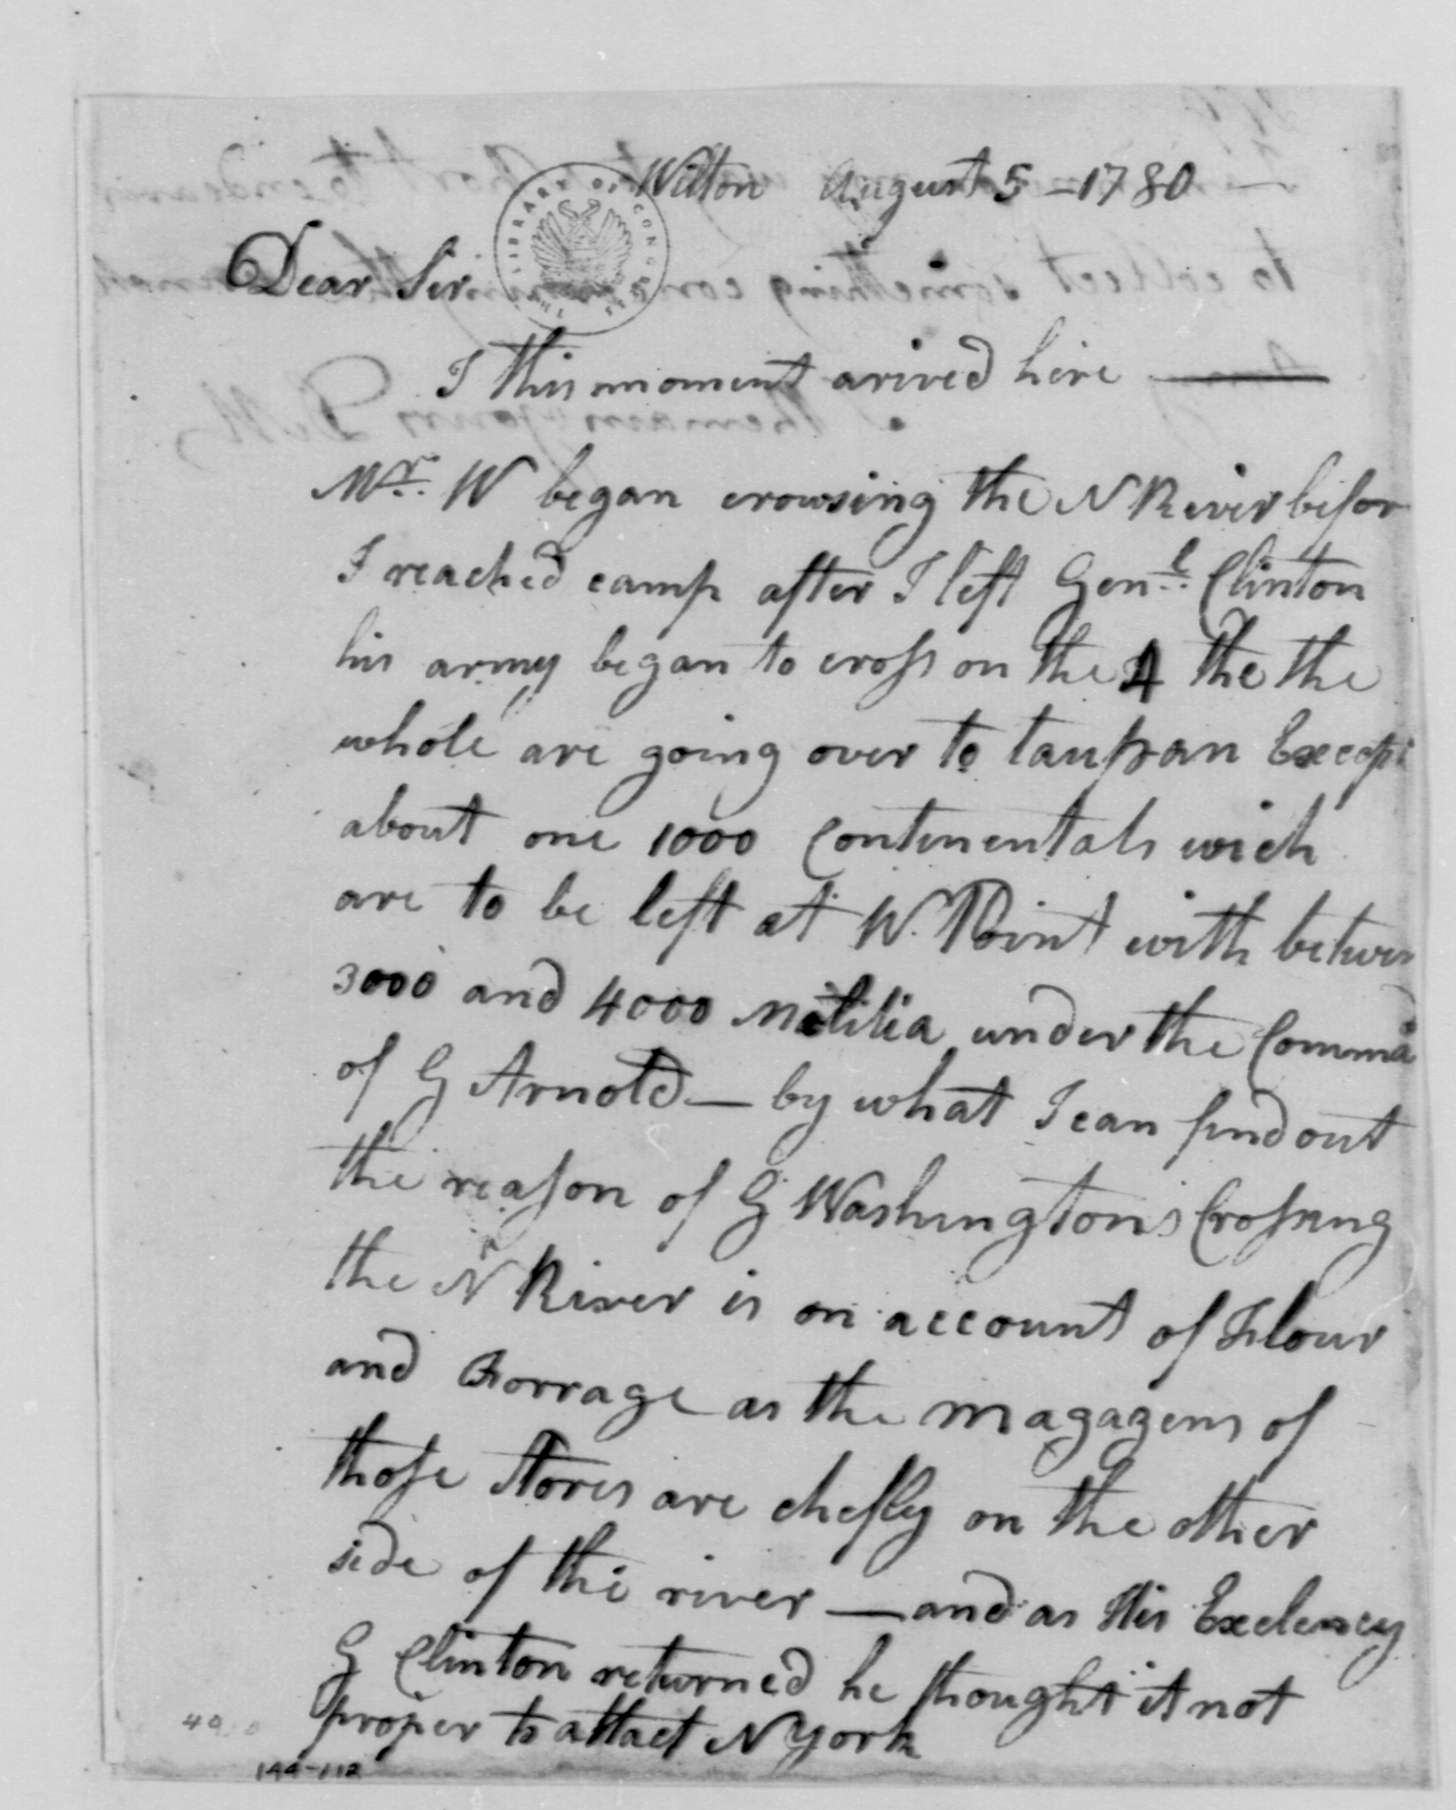 Wilton August 5 - 1780
Dear Sir
THE LIBRARY OF CONGRESS
I this moment arived here
Mr. W began crowsing the N River befor
I reached camp after I left Genl. Clinton
his army began to cross on the 4 the the
whole are going over to taupan Except
about one 1000 Continentals wich
are to be left at W. Point with betwen
3000 and 4000 Militia under the Commd
of G Arnold — by what I can find out
the reason of G Washingtons Crossing
the N River is on account of Flour
and Forrage as the magazens of
those Stores are chefly on the other
side of the river — and as His Exelencey
G Clinton returned he thought it not
proper to attact N York
49
144-112